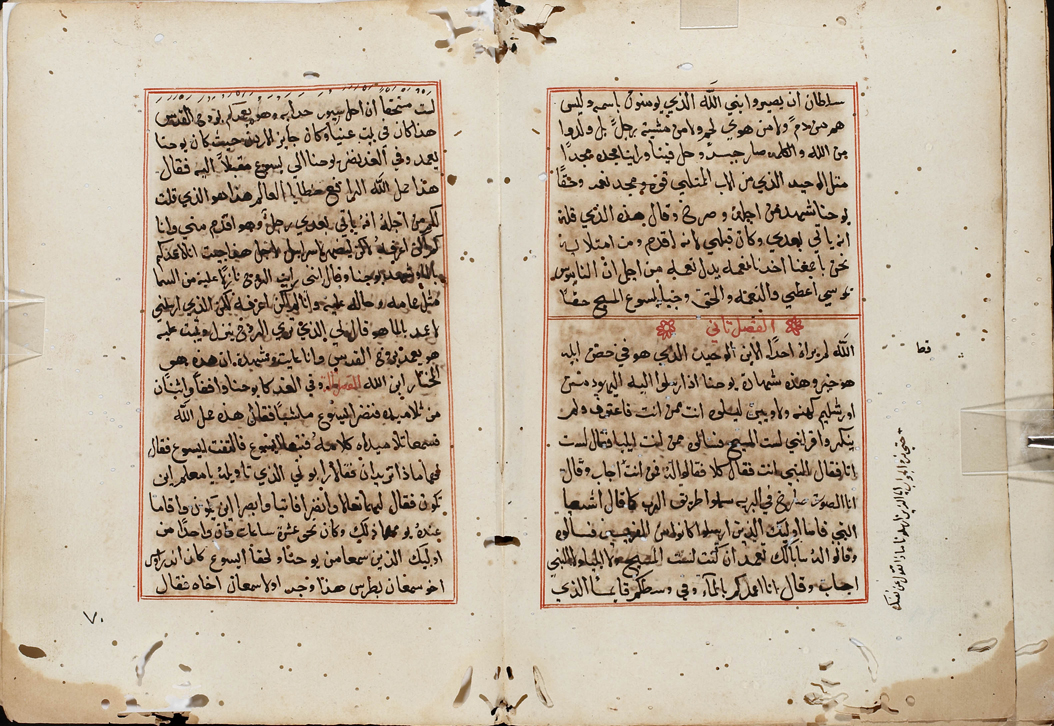 سلطان ان يصيروا ابني اللّه الذي يومنون باسمه وليس
هم من دم ولا من هوي لحم ولا من مشية رجل بل ولدوا
من الله والكلمه صار جسد وحل فينا وراينا مجده مجدًا
مثل الوحيد الذي من الاب الممتلي نعمه وحقًا
يوحنا شهد من اجله وصرخ وقال هذه الذي قلت
انه ياتي بعدي وكان قبلي لانه اقدم ومن امتلايه
نحن باجمعنا اخدنا نعمه بدل نعمه من اجل ان الناموس
بموسي اعطي والنعمه والحق وجبا يسوع المسيح حقًا
الفصل تاني
اللّه لم يراه احدًا الابن الوحيد الذي هو في حضن ابيه
هو خبر وهذه شهادة يوحنا اذ ارسلوا اليه اليهود من
اورشليم كهنه ولاويين ليسلوه انت من انت فاعترف ولم
ينكر واقر انني لست المسيح فسالوه فمن انت ايليا فقال لست
انا فقال النبي انت فقال كلا فقالوا له فمن انت اجاب وقال
انا الصوت صارخ في البريه سهلوا طريق الرب كما قال اشعيا
النبي فاما اوليك الذين ارسلوا كانوا من الفريسيين فسالوه
وقالوا له ما بالك تعمد ان كنت لست المسيح ولا ايليا ولا النبي
اجاب وقال انا اعمدكم بالماء وفي وسطكم قايمًا الذي
قط
لست مستحقًا ان احل سيور حدايه وهو يعمدكم بروح القدس
هذا كان في بيت عنيا وكان جايز الاردن حيث كان يوحنا
يعمد وفي الغد نضر يوحنا الي يسوع مقبلًا اليه فقال
هذا حمل اللّه الذي يرفع خطايا العالم هذا هو الذي قلت
لكم من اجله انه ياتي بعدي رجل وهو اقدم مني وانا
لم اكن اعرفه لكن ليضهر لاسراييل لاجل هذا جيت انا لاعمدكم
بالماء وشهد يوحنا وقال انني رايت الروح نازلًا عليه من السما
مثل حمامه وحاله عليه وانا لم اكن اعرفه لكن الذي ارسلني
لاعمد بالما هو قال لي الذي تري الروح ينزل ويثبت عليه
هو يعمد بروح القدس وانا عاينت وشهدة ان هذه هو
ابن الله وفي الغد كان يوحنا واقفًا واثنان
من تلاميده فنضر ليسوع ماشيًا فقال هذه حمل اللّه
فسمعا تلاميداه كلامه فتبعا يسوع فالتفت يسوع فقال
لهما ماذا تريدان فقالا رابوني الذي تاويله يا معلم اين
تكون فقال لهما تعالا وانضرا فاتيا وابصرا اين يكون واقاما
عنده يومهما ذلك وكان نحو عشرة ساعات فان واحدًا من
اوليك الذين سمعا من يوحنا ولحقا يسوع كان اندراوس
اخو سمعان بطرس هذا وجد اولا سمعان اخاه فقال